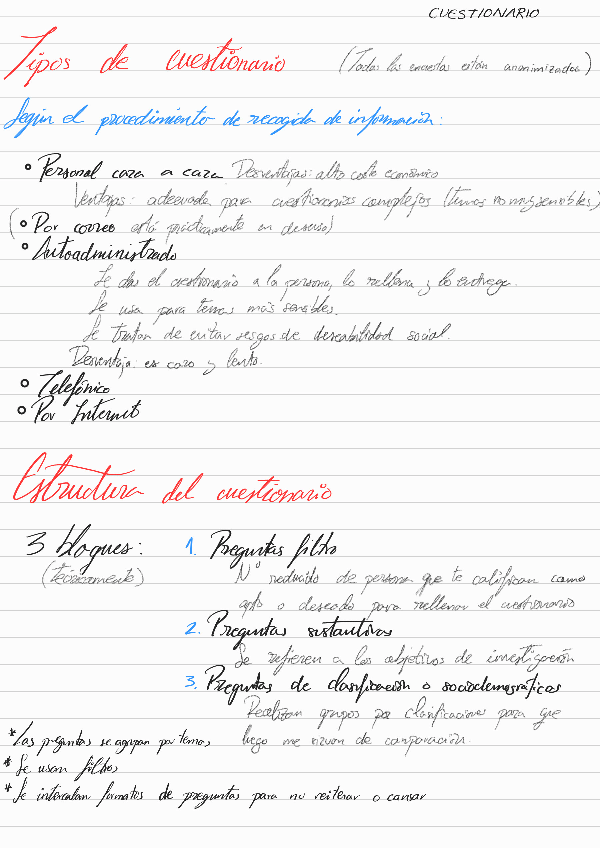 CUESTIONARIO
Tipos de cuestionario (Todas las encuestas están anonimizadas)
Según el procedimiento de recogida de información:
Personal cara a cara Desventajas: alto coste económico
Ventajas: adecuada para cuestionarios complejos (temas no muy sensibles)
(Por correo está prácticamente en desuso)
Autoadministrado
Le das el cuestionario a la persona, lo rellena y lo entrega.
Se usa para temas más sensibles.
Se tratan de evitar sesgos de deseabilidad social.
Desventaja: es caro y lento.
Telefónico
Por Internet
Estructura del cuestionario
3 bloques: 1. Preguntas filtro
(teóricamente) Nº reducido de persona que te califican como
apto o deseado para rellenar el cuestionario
2. Preguntas sustantivas
Se refieren a los objetivos de investigación
3. Preguntas de clasificación o sociodemográficas
Realizan grupos por clasificaciones para que
* Las preguntas se agrupan por temas, luego me sirvan de comparación.
* Se usan filtros
* Se intercalan formatos de preguntas para no reiterar o cansar